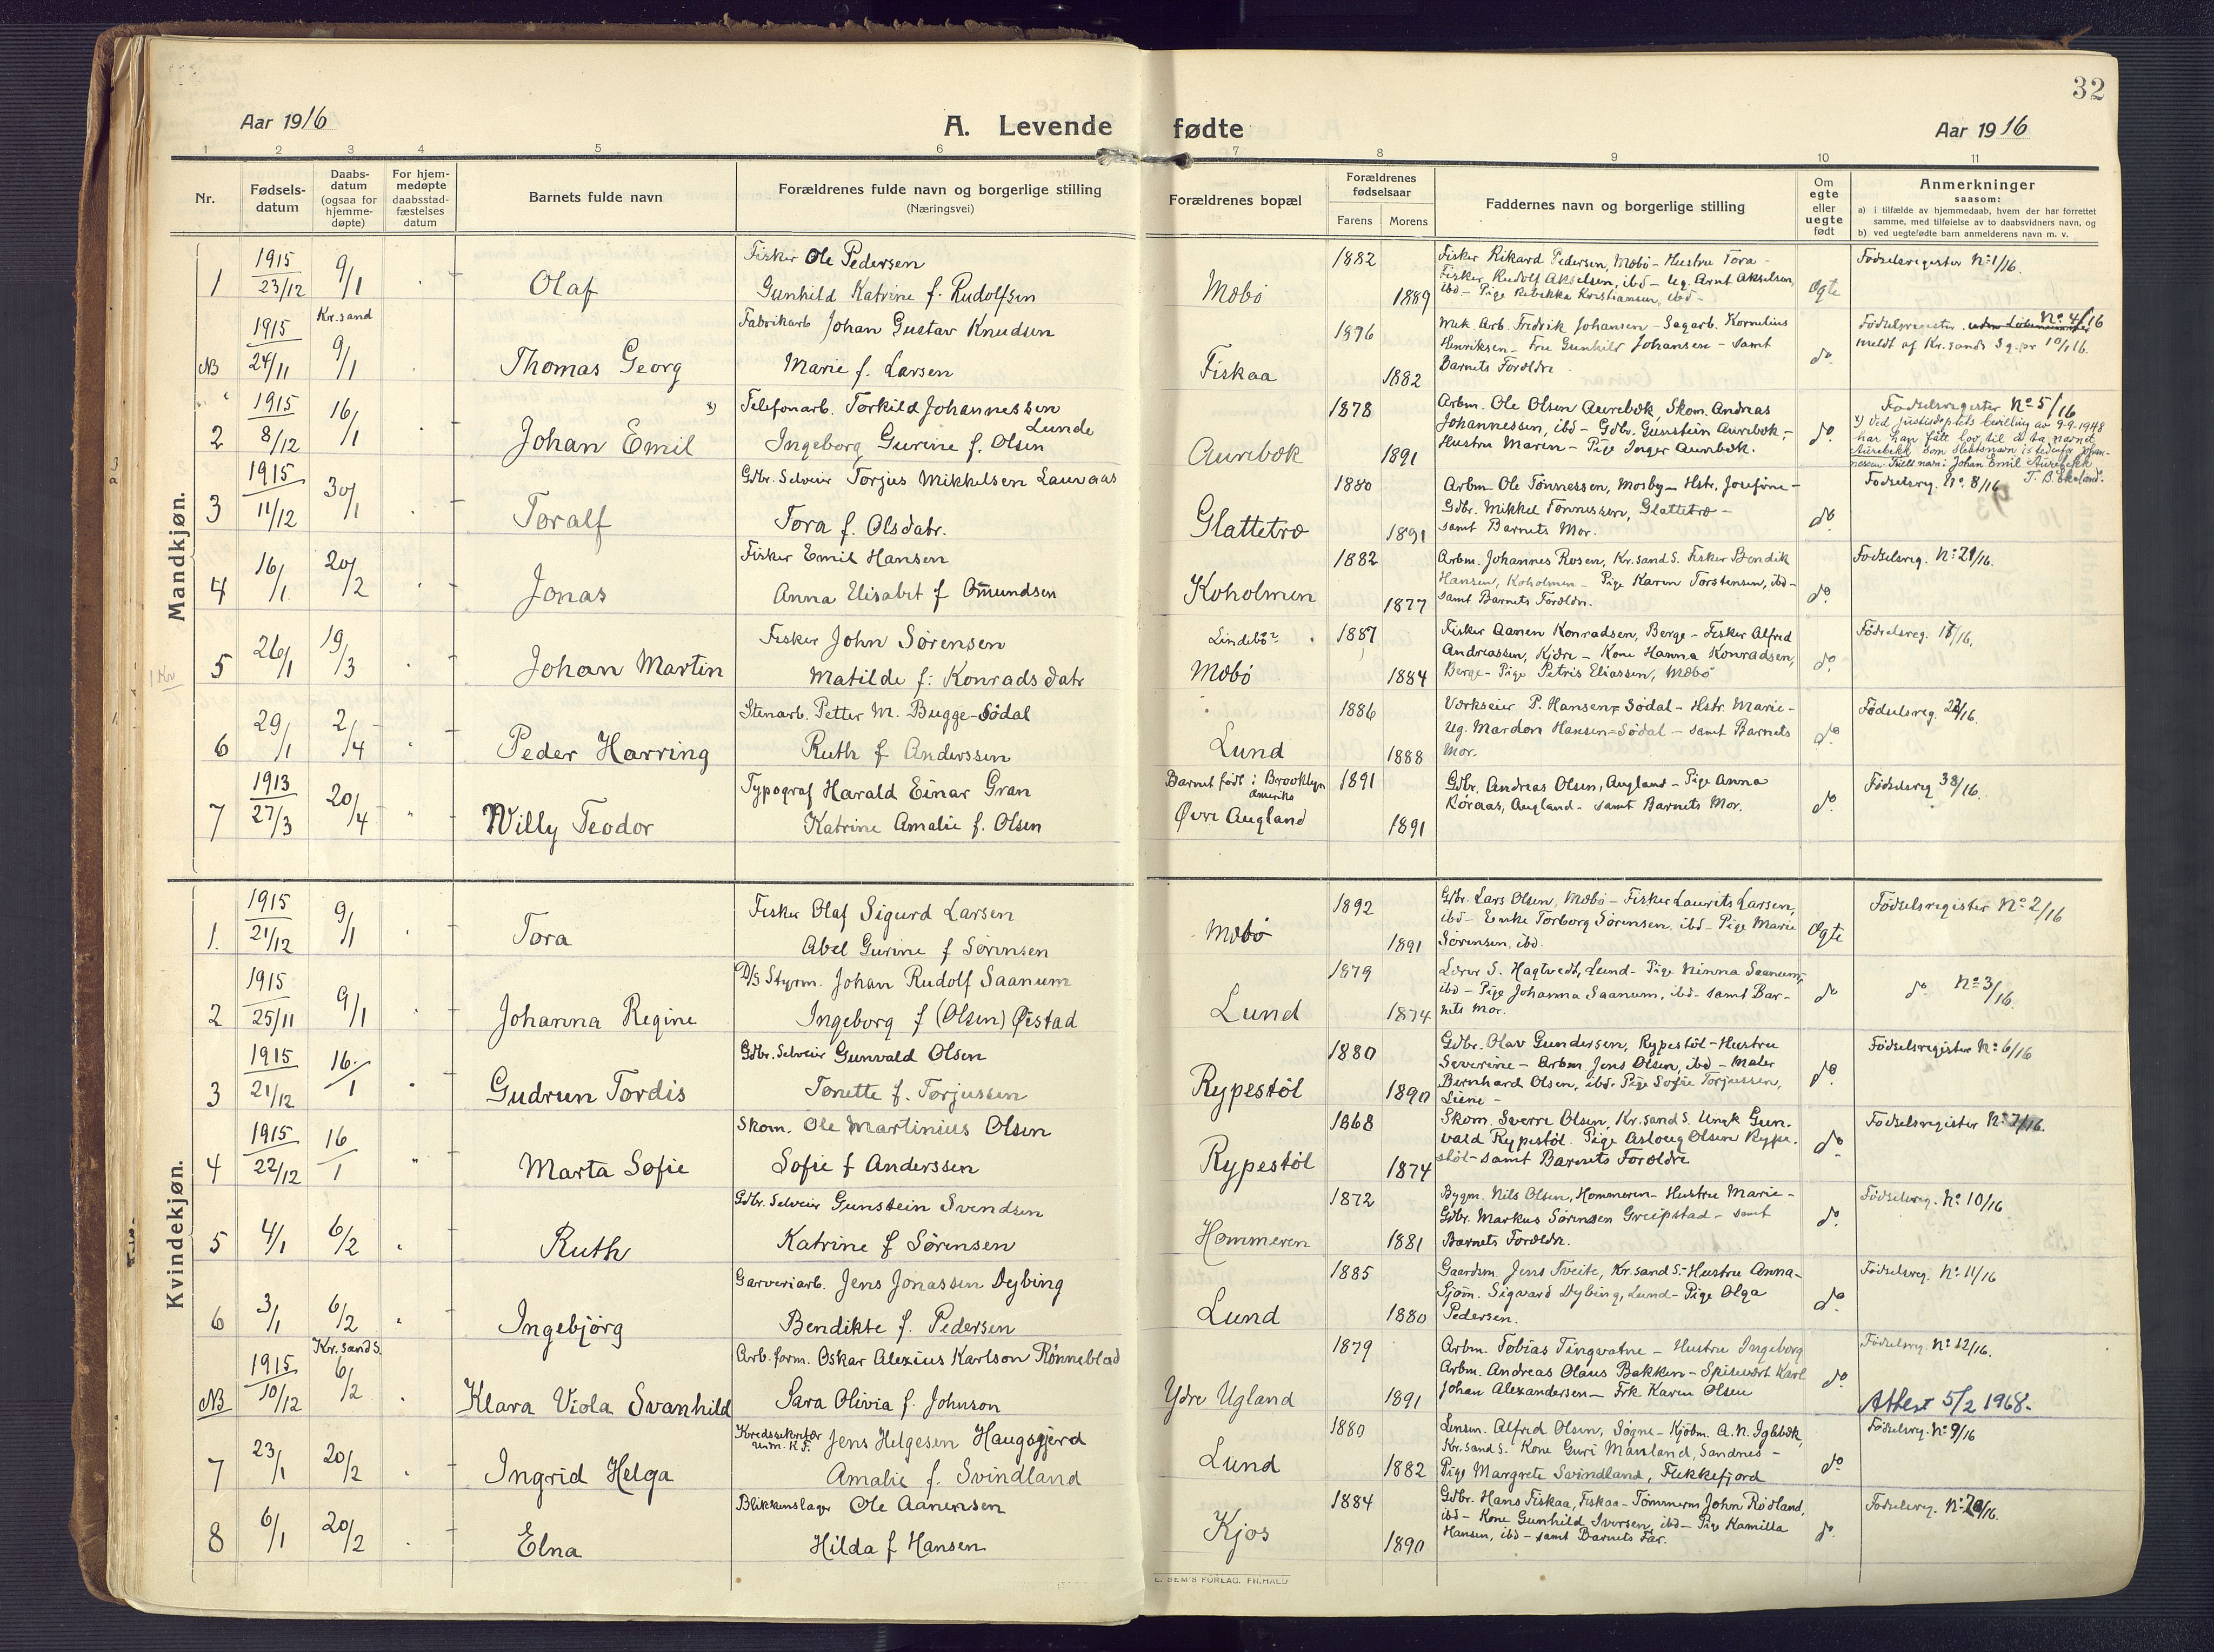 32
Aar 1916
A. Levende fødte
Aar 1916
1 2 3 4 5 6 7 8 9 10 11
Nr.
Fødsels-
datum
Daabs-
datum
(ogsaa for
hjemme-
døpte)
For hjem-
medøpte
daabsstad-
fæstelses
datum
Barnets fulde navn
Forældrenes fulde navn og borgerlige stilling
(Næringsvei)
Forældrenes bopæl
Forældrenes
fødselsaar
Farens Morens
Faddernes navn og borgerlige stilling
Om
egte
eller
uegte
født
Anmerkninger
saasom:
a) i tilfælde av hjemmedaab, hvem der har forrettet
samme, med tilføielse av to daabsvidners navn, og
b) ved uegtefødte barn anmelderens navn m. v.
Mandkjøn.
1 1915 23/12 9/1 Olaf
Fisker Ole Pedersen
Gunhild Katrine f. Rudolfsen
Mæbö 1882 1889
Fisker Rikard Pedersen, Mæbö - Hustru Tora -
Fisker Rudolf Akselsen, ibd - Ug. Arnt Akselsen,
ibd - Pige Rebekka Kristiansen, ibd -
Ægte
Födselsregister No 1/16.
NB 1915 24/11 Kr.sand 9/1 Thomas Georg
Fabrikarb Johan Gustav Knudsen
Marie f. Larsen
Fiskaa 1896 1882
Mek. Arb. Fredrik Johansen - Sagarb. Kornelius
Henriksen - Fru Gunhild Johansen - samt
Barnets Forældre
do
Födselsregister No 4/16
meldt af Kr.sands Sg.pr 10/1 16.
2 1915 8/12 16/1 Johan Emil x)
Telefonarb. Torkild Johannessen
Lunde
Ingeborg Gurine f. Olsen
Aurebæk 1878 1891
Arbm. Ole Olsen Aurebæk, Skom. Andreas
Johannessen, ibd - Gdbr. Gunstein Aurebæk, -
Hustru Maren - Pige Inger Aurebæk.
do
Födselsregister No 5/16
x) Ved justisdeptets bevilling av 9-9-1948
har han fått lov til å ta navnet
Aurebekk som slektsnavn istedenfor Johan-
nessen. Fullt navn: Johan Emil Aurebekk
3 1915 11/12 30/1 Toralf
Gdbr. Selveier Torjus Mikkelsen Lauvaas
Tora f. Olsdatr.
Glattetræ 1880 1891
Arbm Ole Tönnessen, Mosby - Hstr. Josefine -
Gdbr. Mikkel Tönnessen, Glattetræ -
samt Barnets Mor.
do
Fodselsreg. No. 8/16
4 16/1 20/2 Jonas
Fisker Emil Hansen
Anna Elisabet f Omundsen
Koholmen 1882 1877
Arbm. Johannes Rosen, Kr.sand S. Fisker Bendik
Hansen, Koholmen - Pige Karen Torstensen, ibd -
samt Barnets Forældre.
do
Fodselsreg. No 21/16.
5 26/1 19/3 Johan Martin
Fisker John Sørensen
Matilde f. Konradsdatr
Mæbö 1887 1884
Fisker Aanen Konradsen, Berge - Fisker Alfred
Andreassen, Kjære - Kone Hanna Konradsen,
Berge - Pige Petris Eliassen, Mæbö
do
6 29/1 2/4 Peder Harring
Stenarb. Petter M. Bugge-Södal
Ruth f Anderssen
Lund 1886 1888
Værkseier P. Hansen Södal - Hstr. Marie -
Ug. Mardon Hansen-Södal - samt Barnets
Mor.
do
Födselsreg. 22/16.
7 1913 27/3 20/4 Willy Teodor
Typograf Harald Einar Gran
Katrine Amalie f. Olsen
Barnet födt i Brooklyn
Amerika
Øvre Augland 1891 1891
Gdbr. Andreas Olsen, Augland - Pige Anna
Köraas, Augland - samt Barnets Mor.
do
Födselsreg 38/16.
Kvindekjøn.
1. 1915 21/12 9/1 Tora
Fisker Olaf Sigurd Larsen
Abel Gurine f Sörensen
Mæbö 1892 1891
Gdbr. Lars Olsen, Mæbö - Fisker Laurits Larsen,
ibd - Enke Torborg Sörensen, ibd - Pige Marie
Sörensen, ibd.
Ægte
Födselsregister No 2/16
2 1915 25/11 9/1 Johanna Regine
D/S Styrm. Johan Rudolf Saanum
Ingeborg f (Olsen) Øistad
Lund 1879 1874
Lærer S. Hagtvedt, Lund - Pige Ninna Saanum,
ibd - Pige Johanna Saanum, ibd - samt Bar-
nets Mor.
do
do No 3/16.
3 1915 21/12 16/1 Gudrun Tordis
Gdbr. Selveier Gunvald Olsen
Tonette f. Torjussen
Rypestöl 1880 1890
Gdbr. Olav Gundersen, Rypestöl - Hustru
Severine - Arbm. Jens Olsen, ibd - Maler
Bernhard Olsen, ibd. Pige Sofie Torjussen,
do
Födselsregister No 6/16
4 1915 22/12 16/1 Marta Sofie
Skom. Ole Martinius Olsen
Sofie f Anderssen
Rypestöl 1868 1874
Skom. Sverre Olsen, Kr.sand S. Ungk Gun-
vald Rypestöl. Pige Aslaug Olsen Rype-
stöl - samt Barnets Forældre
do
Födselsregister No 7/16.
5 4/1 6/2 Ruth
Gdbr. Selveier Gunstein Svendsen
Katrine f Sörensen
Hommeren 1872 1881
Bygm. Nils Olsen, Hommeren - Hustru Marie -
Gdbr. Markus Sörensen Greipstad - samt
Barnets Forældre.
do
Födselsreg. No 10/16
6 3/1 6/2 Ingebjørg
Garveriarb. Jens Jonassen Dybing
Bendikte f. Pedersen
Lund 1885 1880
Gaardsm. Jens Tveite, Kr.sand S. - Hustru Anna -
Sjöm. Sigvard Dybing, Lund - Pige Olga
Pedersen.
do
Födselsreg. No 11/16
NB 1915 10/12 Kr.sand S. 6/2 Klara Viola Svanhild
Arb.form. Oskar Alexius Karlson Rönneblad
Sara Olivia f. Johnson
Ydre Ugland 1879 1891
Arbm. Tobias Tingvatne - Hustru Ingeborg
Arbm. Andreas Olaus Bakken - Spisevært Karl
Johan Alexandersen - Frk Karen Olsen
do
Födselsreg No 12/16.
Attest 5/2 1968.
7 23/1 20/2 Ingrid Helga
Kredssekretær
Jens Helgesen Haugsgjerd
Amalie f. Svindland
Lund 1880 1882
Lensm. Alfred Olsen, Søgne - Kjöbm. A. N. Iglebæk,
Kr.sand S. Kone Guri Mausland, Sandnes -
Pige Margrete Svindland, Flekkefjord
do
Födselsreg. No 9/16
8 6/1 20/2 Elna
Blikkenslager Ole Aanensen
Hilda f Hansen
Kjos 1884 1890
Gdbr. Hans Fiskaa, Fiskaa - Tömmerm John Rödland,
ibd - Kone Gunhild Iversen, ibd - Pige Kamilla
Hansen, ibd - samt Barnets Far.
do
Födselsreg. No 20/16.
E. SEM'S FORLAG. FR.HALD